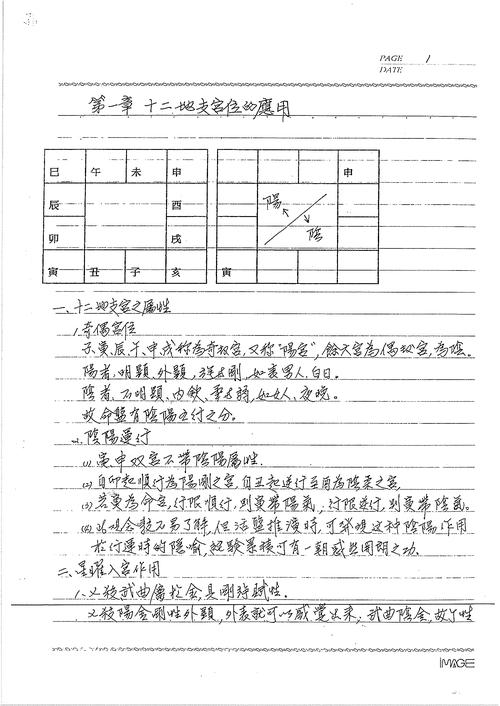 PAGE 1
DATE
第一章 十二地支宮位的應用
巳 午 未 申
辰 酉
卯 戌
寅 丑 子 亥
申
陽
陰
寅
一、十二地支宮之屬性
1.奇偶宮位
子、寅、辰、午、申、戌称為奇數宮,又称"陽宮",餘六宮為偶數宮,為陰。
陽者,明顯、外顯,強、剛,如表男人、白日。
陰者,不明顯、內斂、柔、弱,如女人、夜晚。
故命盤有陰陽之分。
2.陰陽運行
(1)寅申双宮不帶陰陽屬性.
(2)自卯起順行為陽剛之宮,自丑起逆行至酉為陰柔之宮
(3)若寅為命宮,行限順行,則寅帶陽氣,行限逆行,則寅帶陰氣。
(4)此观念較不易了解,但活盤推演時,可發現这种陰陽作用
於行運時的隱喻,經驗累積可有一朝豁然開朗之功.
二、星曜入宮作用
1.七殺武曲屬於金,具剛特賦性.
七殺陽金剛性外顯,外表就可以感覺出來,武曲陰金,故个性
IMAGE